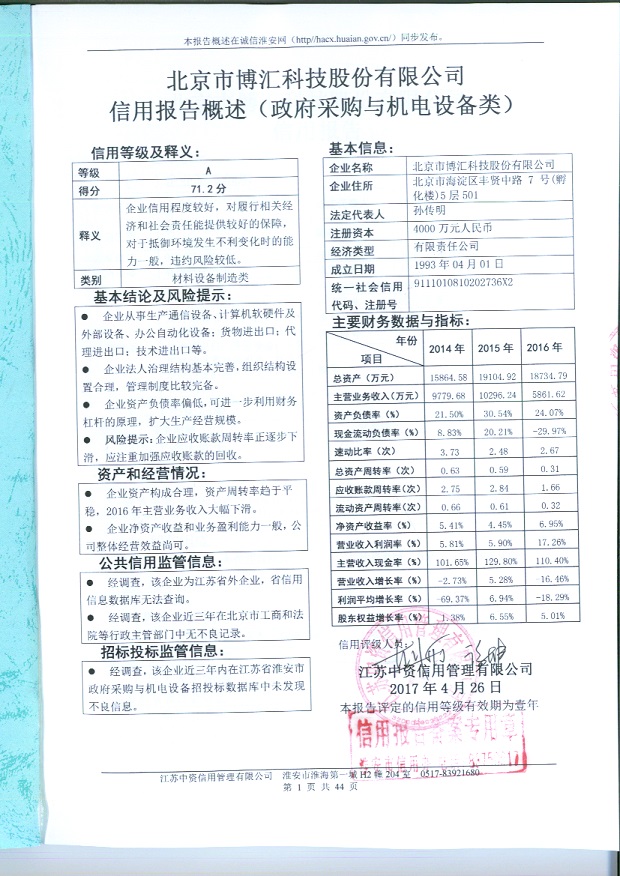 本报告概述在诚信淮安网（http//hacx.huaian.gov.cn/）同步发布。
北京市博汇科技股份有限公司
信用报告概述（政府采购与机电设备类）
信用等级及释义：
等级 A
得分 71.2 分
释义
企业信用程度较好，对履行相关经
济和社会责任能提供较好的保障，
对于抵御环境发生不利变化时的能
力一般，违约风险较低。
类别 材料设备制造类
基本结论及风险提示：
● 企业从事生产通信设备、计算机软硬件及
外部设备、办公自动化设备；货物进出口；代
理进出口；技术进出口等。
● 企业法人治理结构基本完善，组织结构设
置合理，管理制度比较完备。
● 企业资产负债率偏低，可进一步利用财务
杠杆的原理，扩大生产经营规模。
● 风险提示：企业应收账款周转率正逐步下
滑，应注重加强应收账款的回收。
资产和经营情况：
● 企业资产构成合理，资产周转率趋于平
稳，2016 年主营业务收入大幅下滑。
● 企业净资产收益和业务盈利能力一般，公
司整体经营效益尚可。
公共信用监管信息：
● 经调查，该企业为江苏省外企业，省信用
信息数据库无法查询。
● 经调查，该企业近三年在北京市工商和法
院等行政主管部门中无不良记录。
招标投标监管信息：
● 经调查，该企业近三年内在江苏省淮安市
政府采购与机电设备招投标数据库中未发现
不良信息。
基本信息：
企业名称 北京市博汇科技股份有限公司
企业住所 北京市海淀区丰贤中路 7 号(孵
化楼)5 层 501
法定代表人 孙传明
注册资本 4000 万元人民币
经济类型 有限责任公司
成立日期 1993 年 04 月 01 日
统一社会信用
代码、注册号 9111010810202736X2
主要财务数据与指标：
年份
项目 2014 年 2015 年 2016 年
总资产（万元） 15864.58 19104.92 18734.79
主营业务收入(万元) 9779.68 10296.24 5861.62
资产负债率（%） 21.50% 30.54% 24.07%
现金流动负债率（%） 8.83% 20.21% -29.97%
速动比率（%） 3.73 2.48 2.67
总资产周转率（次） 0.63 0.59 0.31
应收账款周转率（次） 2.75 2.84 1.66
流动资产周转率（次） 0.66 0.61 0.32
净资产收益率（%） 5.41% 4.45% 6.95%
营业收入利润率（%） 5.81% 5.90% 17.26%
主营收入现金率（%） 101.65% 129.80% 110.40%
营业收入增长率（%） -2.73% 5.28% -16.46%
利润平均增长率（%） -69.37% 6.94% -18.29%
股东权益增长率（%） 1.38% 6.55% 5.01%
信用评级人员：
江苏中资信用管理有限公司
2017 年 4 月 26 日
本报告评定的信用等级有效期为壹年
信用报告备案专用章
江苏中资信用管理有限公司 淮安市淮海第一城 H2 幢 204 室 0517-83921680
第 1 页 共 44 页